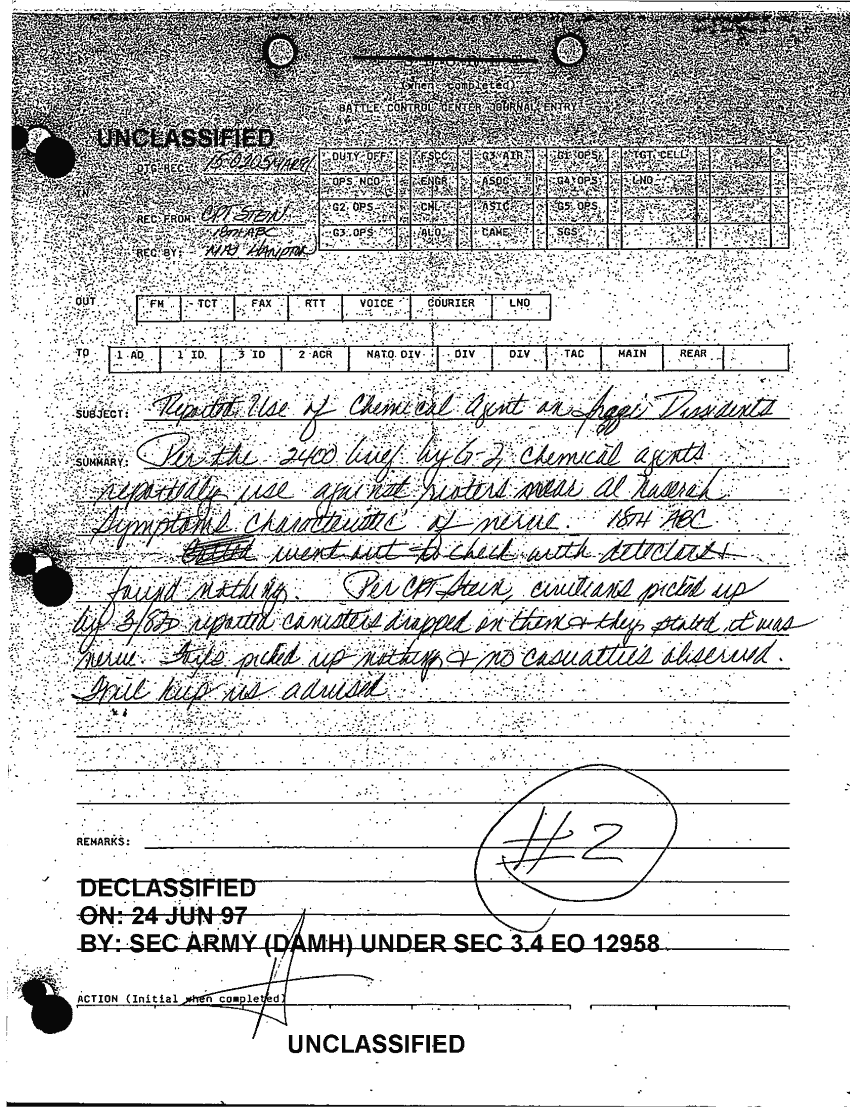 (when completed)
BATTLE CONTROL CENTER JOURNAL ENTRY
UNCLASSIFIED
DTG REC:
DUTY OFF FSCC G3 AIR G1 OPS TGT CELL
IN
OPS NCO ENGR ASOC G4 OPS LNO
REC FROM: CPT STEIN
G2 OPS CML ASIC G5 OPS
18TH ABC
G3 OPS ALO CAME SGS
REC BY: MAJ HAMPTON
OUT FM TCT FAX RTT VOICE COURIER LNO
TO 1 AD 1 ID 3 ID 2 ACR NATO DIV DIV DIV TAC MAIN REAR
SUBJECT: Reported Use of Chemical Agent on Iraqi Dissidents
SUMMARY: Per the 2400 brief by G-2, chemical agents
reportedly use against rioters near Al Naserah
Symptoms characteristic of nerve. 18TH ABC
went out to check with detectors &
found nothing. Per CPT Stein, civilians picked up
by 3/82D reported canisters dropped on them & they stated it was
nerve. picked up nothing & no casualties observed.
Will keep us advised
REMARKS:
#2
DECLASSIFIED
ON: 24 JUN 97
BY: SEC ARMY (DAMH) UNDER SEC 3.4 EO 12958
ACTION (Initial when completed)
UNCLASSIFIED